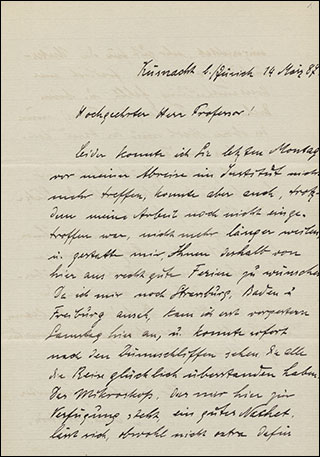 Küsnacht b./Zürich 14 März 87
Hochgeehrter Herr Professor!
Leider konnte ich Sie letzten Montag
vor meiner Abreise im Institut nicht
mehr treffen, konnte aber auch, trotz-
dem meine Arbeit noch nicht einge-
troffen war, nicht mehr länger weilen
u. gestatte mir, Ihnen deshalb von
hier aus recht gute Ferien zu wünschen
Da ich mir noch Strassburg, Baden u
Freiburg ansah, kam ich erst vorgestern
Samstag hier an, u. konnte sofort
nach den Dünnschliffen sehen. Sie alle
die Reise glücklich überstanden haben.
Das Mikroskop, das mir hier zur
Verfügung steht ein guter Nachet.
lässt sich, obwohl nicht extra dafür